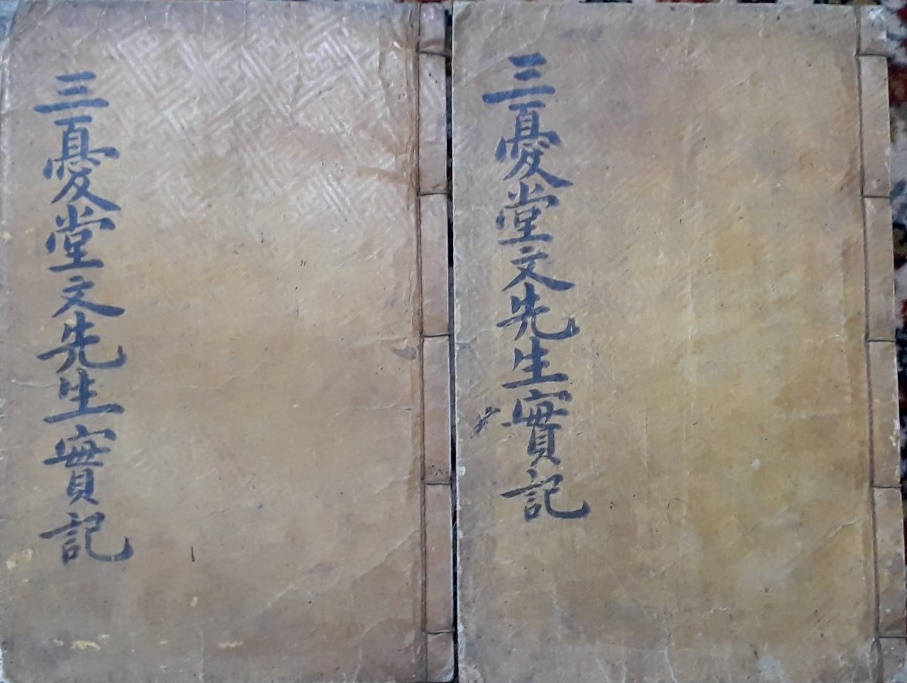 三憂堂文先生實記
三憂堂文先生實記